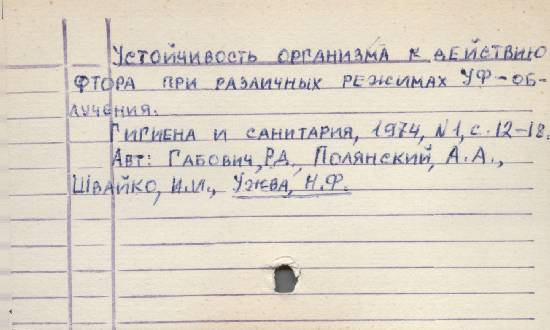 Устойчивость организма к действию
фтора при различных режимах УФ-об-
лучения.
Гигиена и санитария, 1974, N1, с. 12-18.
Авт: Габович, Р.Д., Полянский, А.А.,
Швайко, И.И., Ужва, Н.Ф.